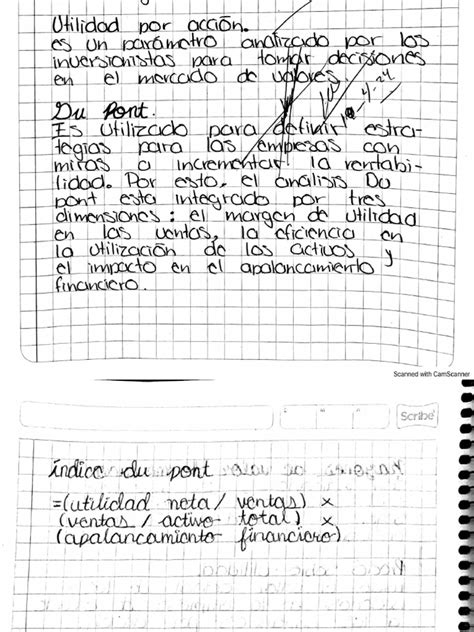 Utilidad por acción.
es un parámetro analizado por los
inversionistas para tomar decisiones
en el mercado de valores.
Du Pont.
Es utilizado para definir estra-
tegias para las empresas con
miras a incrementar la rentabi-
lidad. Por esto, el análisis Du
pont esta integrado por tres
dimensiones: el margen de utilidad
en las ventas, la eficiencia en
la utilización de los activos y
el impacto en el apalancamiento
financiero.
Scanned with CamScanner
Scribe
índice du pont
=(utilidad neta/ ventas) x
(ventas / activo total) x
(apalancamiento financiero)